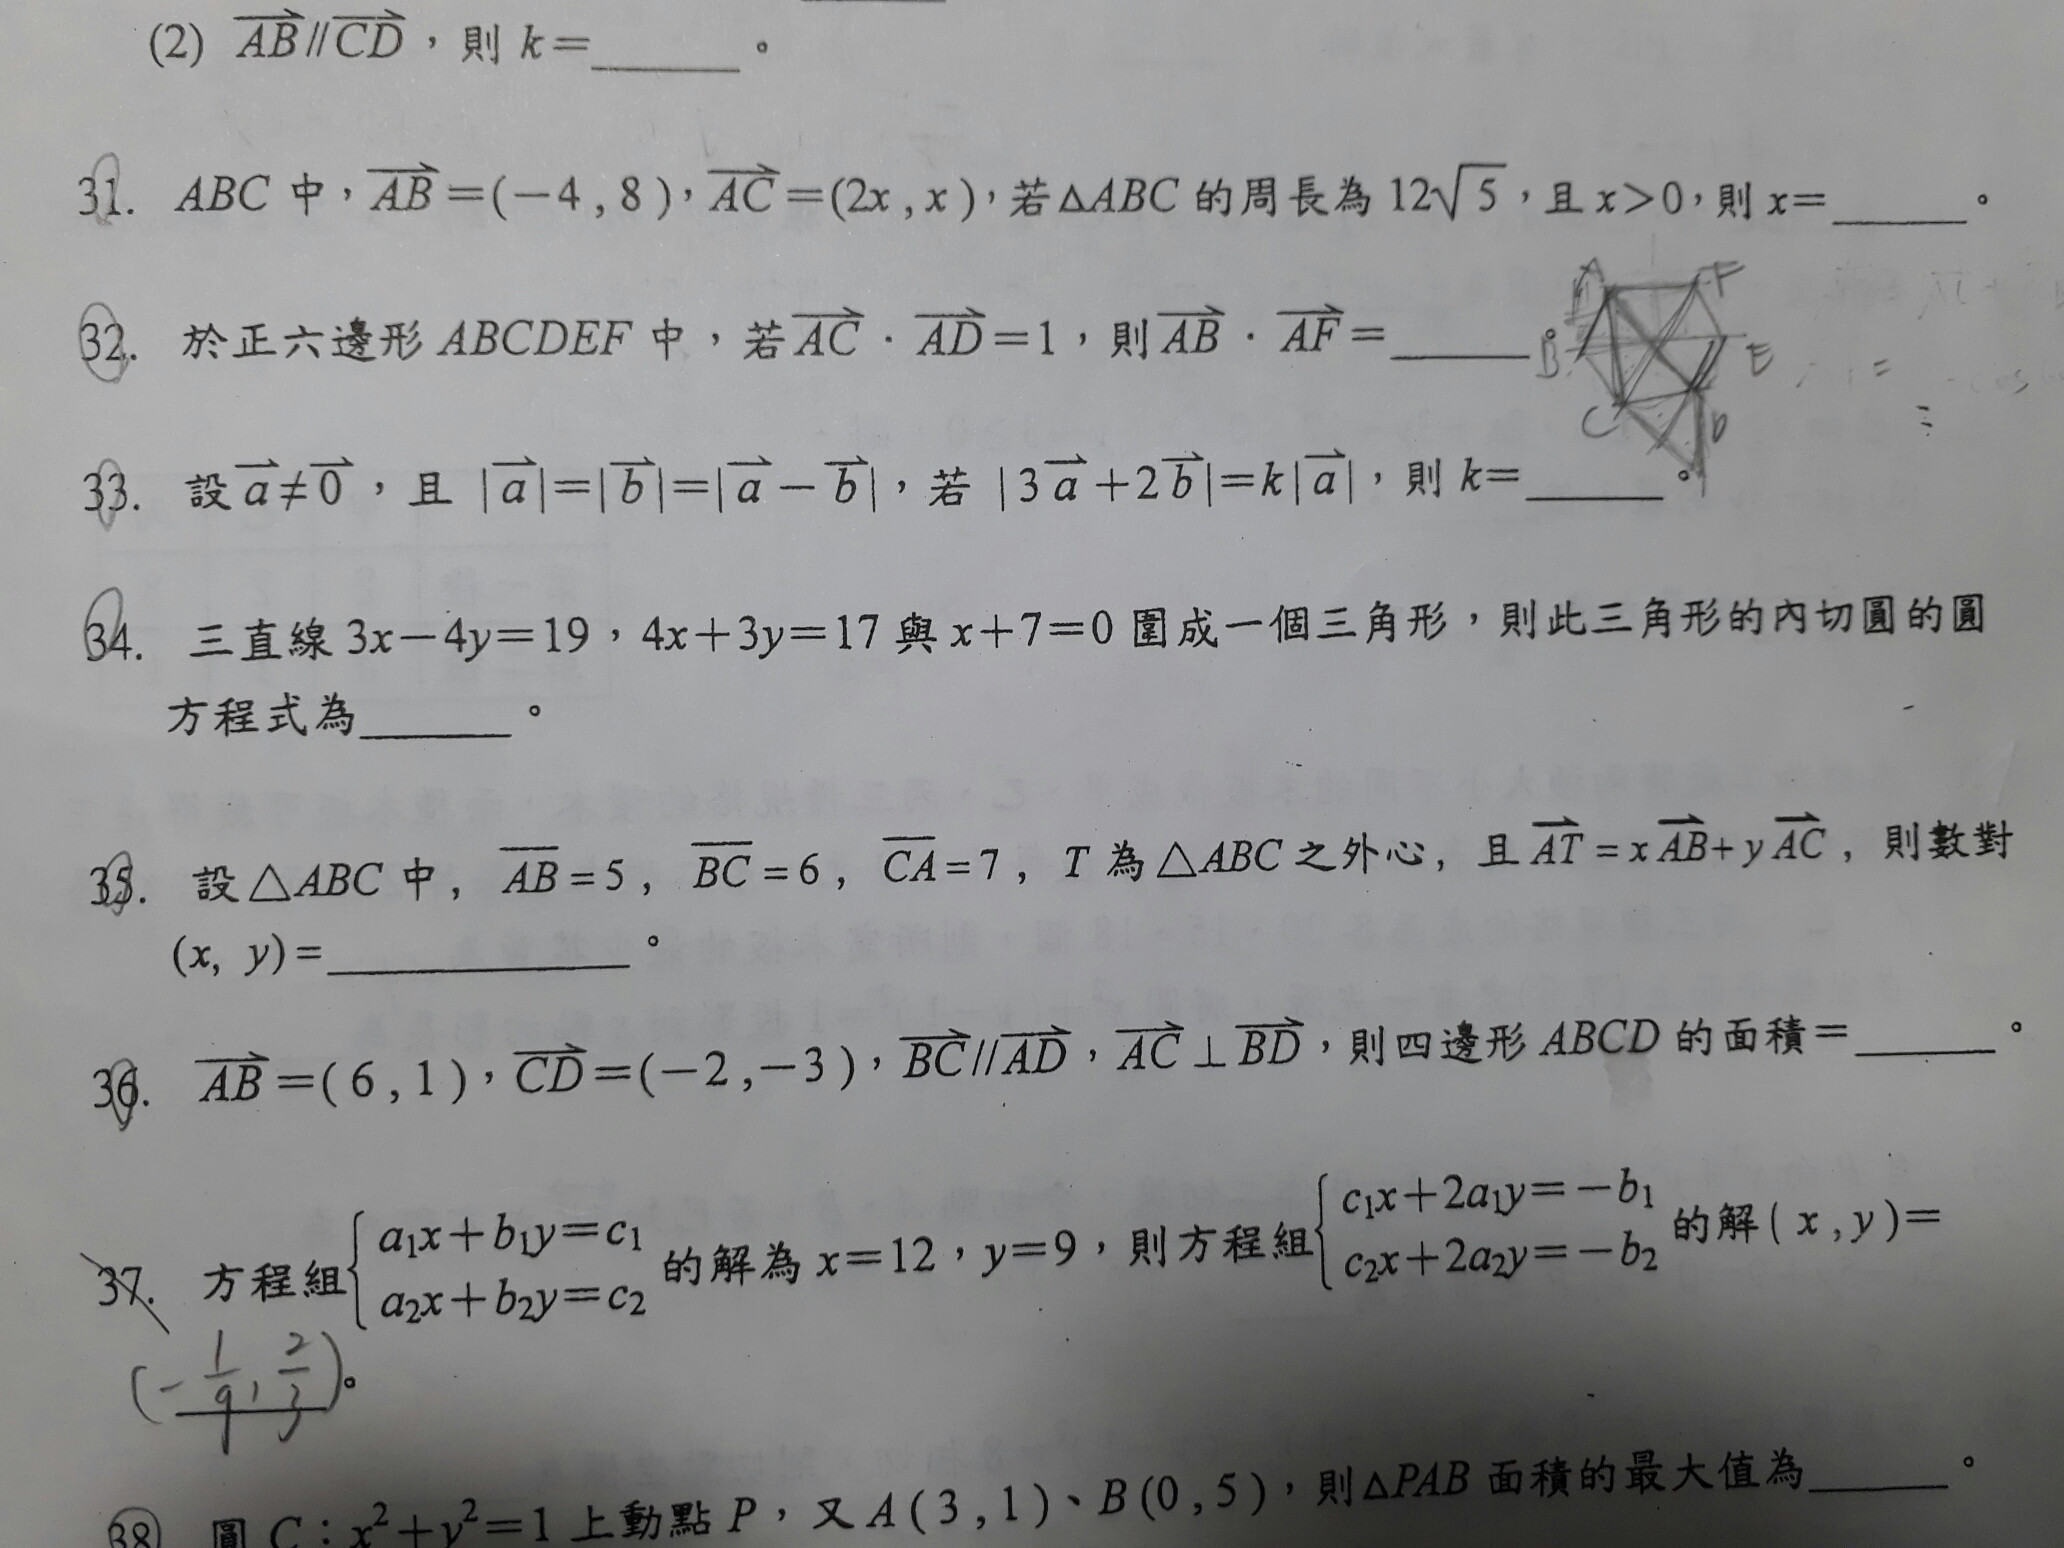 (2) AB//CD，則 k=______。
31. ABC 中，AB=(−4,8)，AC=(2x,x)，若△ABC 的周長為 12√5，且 x>0，則 x=______。
32. 於正六邊形 ABCDEF 中，若 AC · AD=1，則 AB · AF=______。
A F
B E
C D
33. 設 a≠0，且 |a|=|b|=|a−b|，若 |3a+2b|=k|a|，則 k=______。
34. 三直線 3x−4y=19，4x+3y=17 與 x+7=0 圍成一個三角形，則此三角形的內切圓的圓
方程式為______。
35. 設△ABC 中, AB=5, BC=6, CA=7, T 為△ABC 之外心, 且 AT=xAB+yAC, 則數對
(x, y)=____________。
36. AB=(6,1)，CD=(−2,−3)，BC//AD，AC⊥BD，則四邊形 ABCD 的面積=______。
37. 方程組{a₁x+b₁y=c₁ a₂x+b₂y=c₂ 的解為 x=12，y=9，則方程組{c₁x+2a₁y=−b₁ c₂x+2a₂y=−b₂ 的解(x,y)=
(-1/9, 2/3)。
38 圓 C：x²+y²=1 上動點 P，又 A(3,1)、B(0,5)，則△PAB 面積的最大值為______。